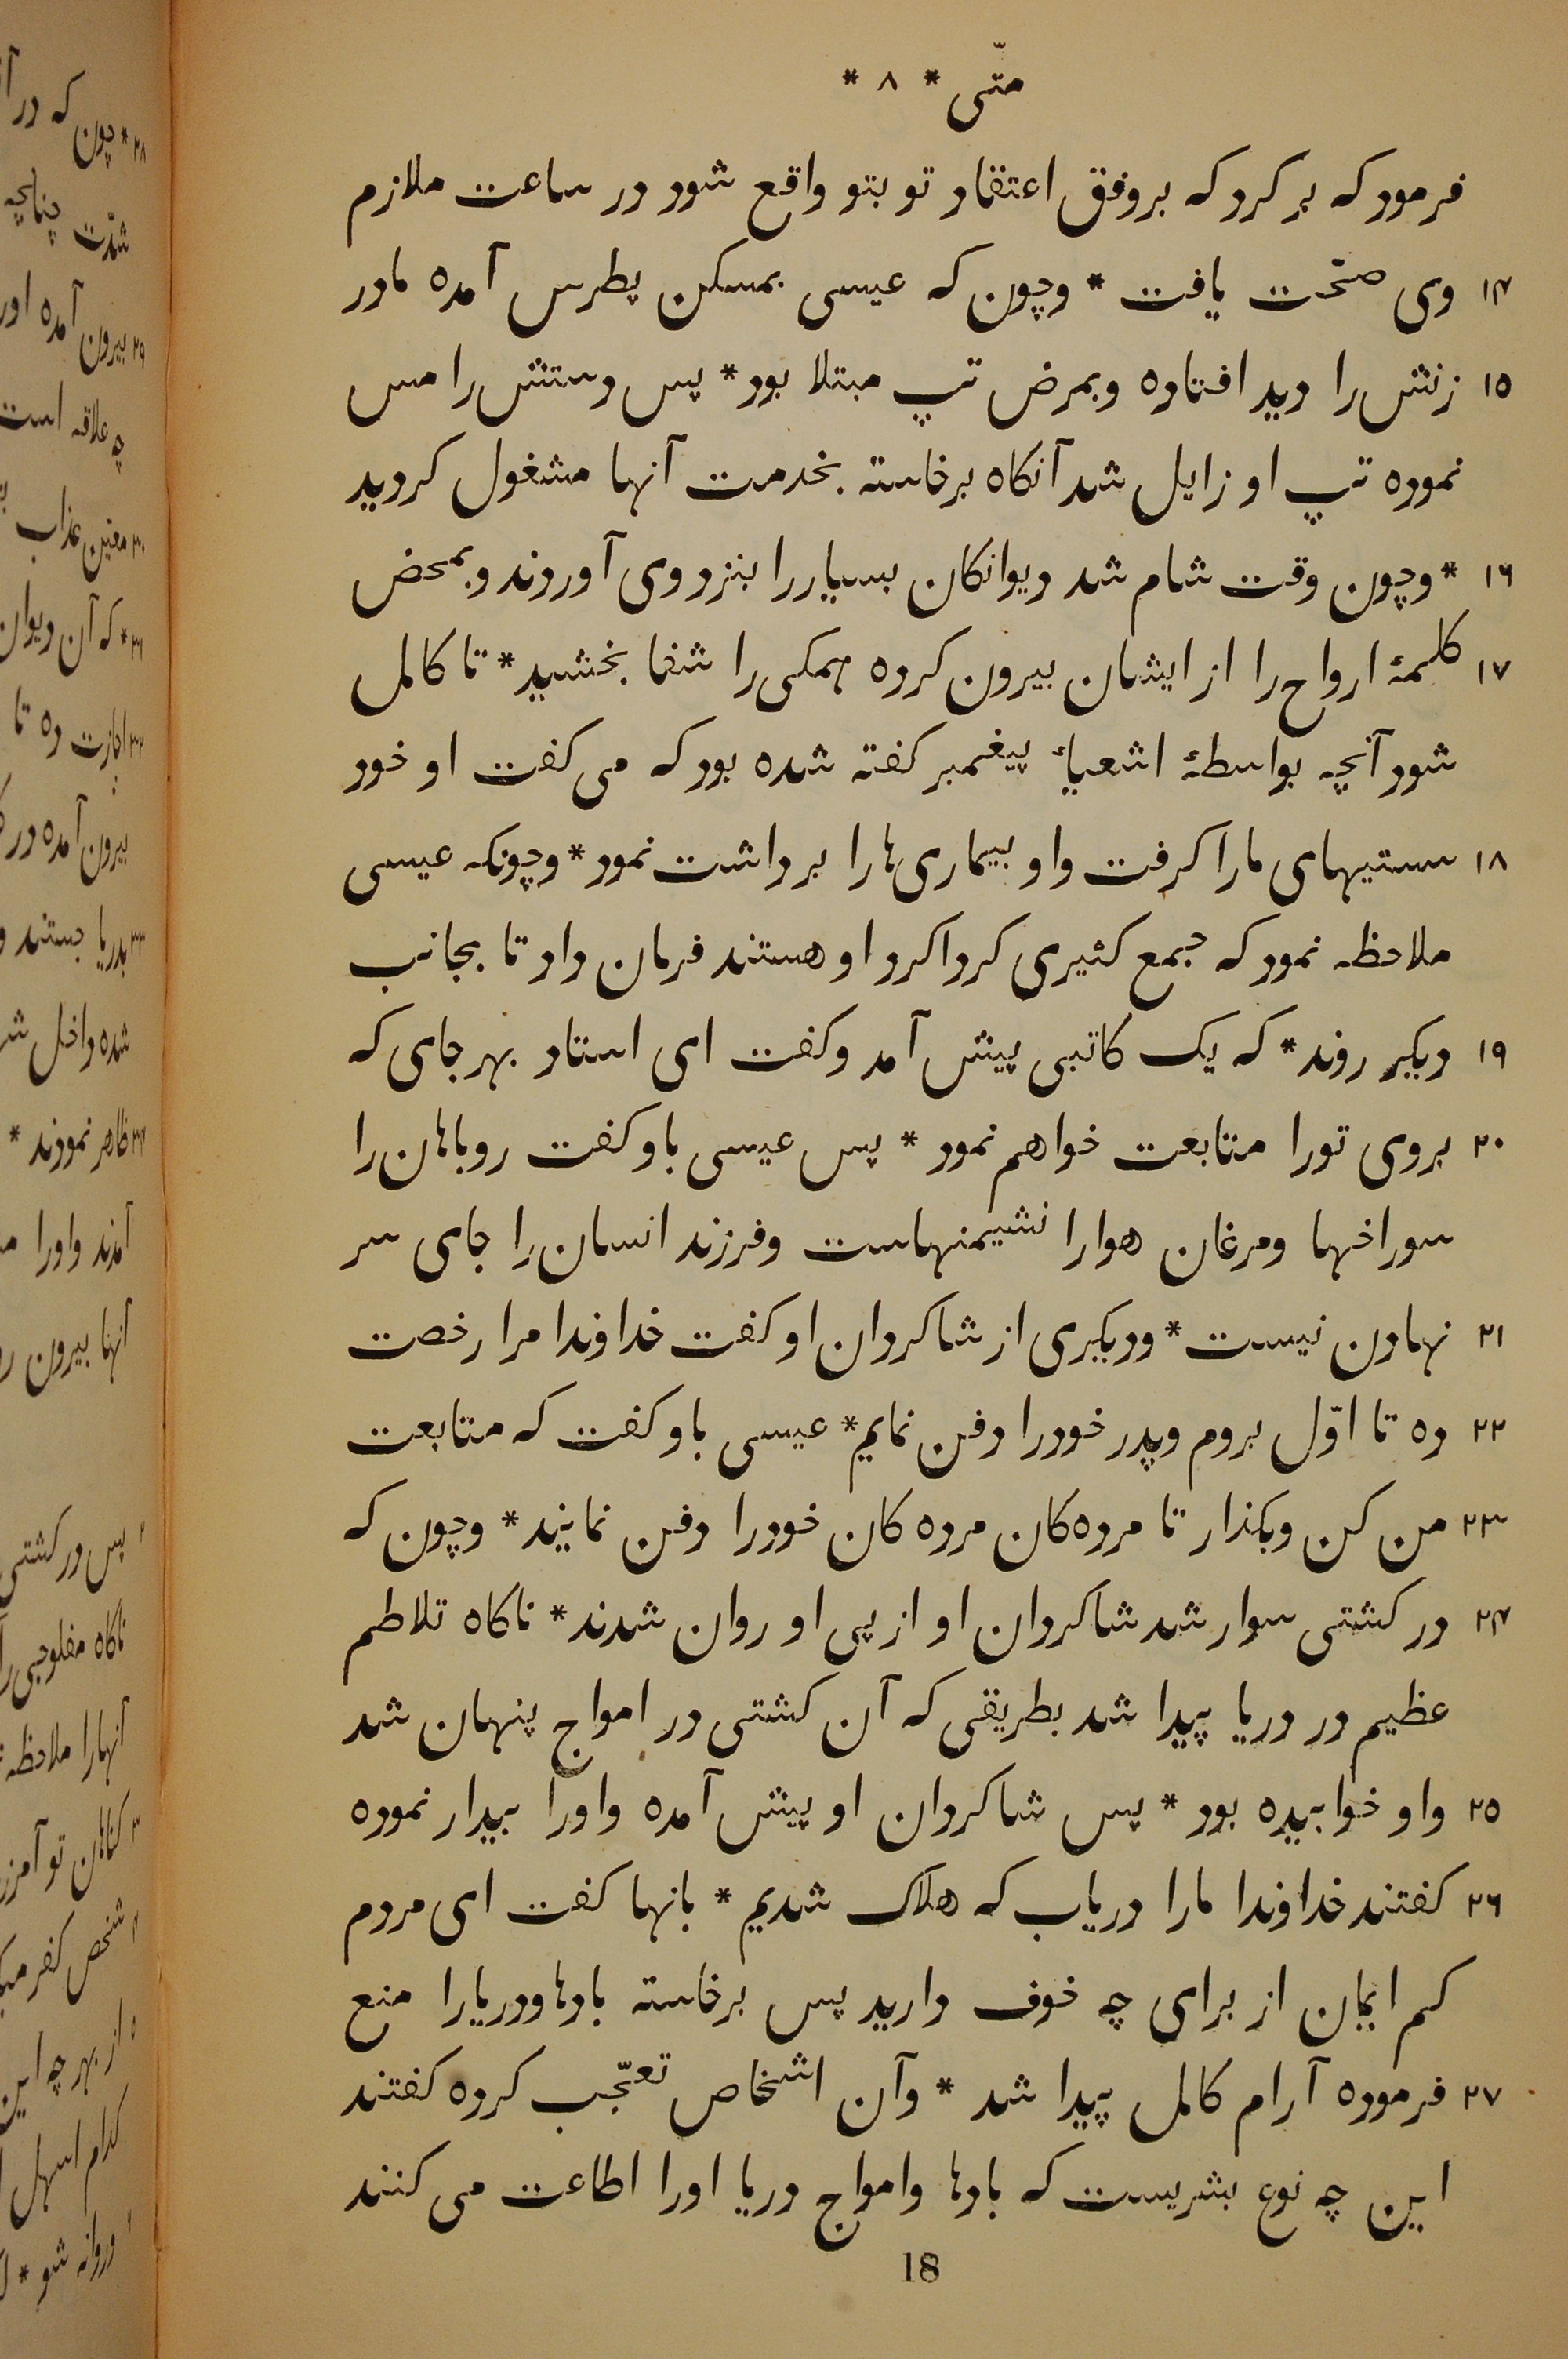 متّی * ۸ *
فرمود که بر کرد که بروفق اعتقاد تو بتو واقع شود در ساعت ملازم
۱۴ وی صحّت یافت * وچون که عیسی بمسکن پطرس آمده مادر
۱۵ زنش را دید افتاده وبمرض تپ مبتلا بود * پس دستش را مس
نموده تپ او زایل شد آنکاه برخاسته بخدمت آنها مشغول کردید
۱۶ * وچون وقت شام شد دیوانکان بسیار را بنزد وی آوردند وبمحض
۱۷ کلمهٔ ارواح را از ایشان بیرون کرده همکی را شفا بخشید * تا کامل
شود آنچه بواسطهٔ اشعیاٴ پیغمبر کفته شده بود که می کفت او خود
۱۸ سستیهای مارا کرفت واو بیماری‌ها را برداشت نمود * وچونکه عیسی
ملاحظه نمود که جمع کثیری کرداکرد او هستند فرمان داد تا بجانب
۱۹ دیکر روند * که یک کاتبی پیش آمد وکفت ای استاد بهر جای که
۲۰ بروی تورا متابعت خواهم نمود * پس عیسی باو کفت روباهان را
سوراخها ومرغان هوارا نشیمنهاست وفرزند انسان را جای سر
۲۱ نهادن نیست * ودیکری از شاکردان او کفت خداوندا مرا رخصت
۲۲ ده تا اوّل بروم وپدر خودرا دفن نمایم * عیسی باو کفت که متابعت
۲۳ من کن وبکذار تا مرده‌کان مرده‌کان خودرا دفن نمایند * وچون که
۲۴ در کشتی سوار شد شاکردان او از پی او روان شدند * ناکاه تلاطم
عظیم در دریا پیدا شد بطریقی که آن کشتی در امواج پنهان شد
۲۵ واو خوابیده بود * پس شاکردان او پیش آمده واورا بیدار نموده
۲۶ کفتند خداوندا مارا دریاب که هلاک شدیم * بانها کفت ای مردم
کم ایمان از برای چه خوف دارید پس برخاسته بادها ودریارا منع
۲۷ فرموده آرام کامل پیدا شد * وآن اشخاص تعجّب کرده کفتند
این چه نوع بشریست که بادها وامواج دریا اورا اطاعت می کنند
18